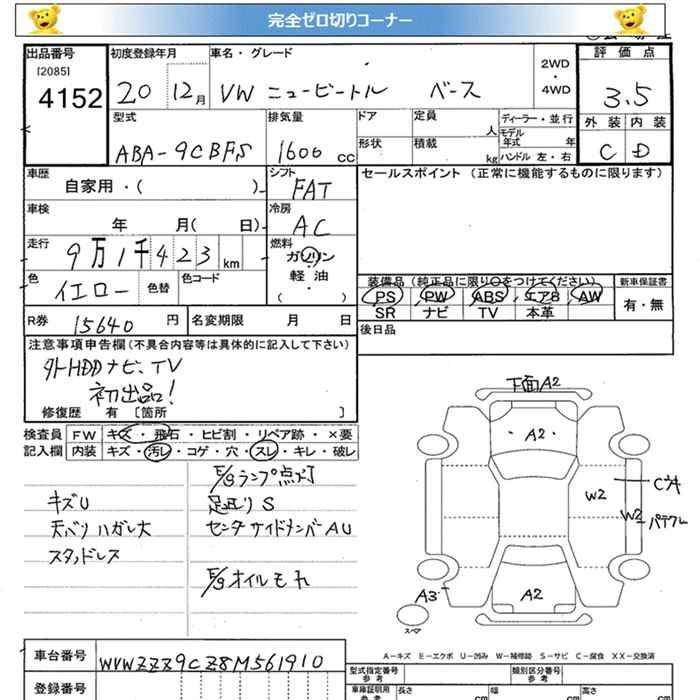 完全ゼロ切りコーナー
出品番号 初度登録年月 車名・グレード 評価点
[2085]
4152 20 12月 VW ニュービートル ベース 2WD・4WD 3.5
型式 排気量 ドア 定員 人 ディーラー・並行 外装 内装
ABA-9CBFS 1600 cc 形状 積載 kg モデル年式 年 ハンドル 左・右 C D
車歴 シフト セールスポイント (正常に機能するものに限ります)
自家用・( ) FAT
車検 冷房
年 月( 日) AC
走行 燃料
9万1千423km ガソリン
軽・油
( )
色 イエロー 色替 色コード
装備品 (純正品に限り○をつけてください) 新車保証書
PS PW ABS エアB AW 有・無
SR ナビ TV 本革
R券 15640 円 名変期限 月 日 後日品
注意事項申告欄(不具合内容等は具体的に記入して下さい)
外HDDナビ、TV
初出品!
修復歴 有 [箇所 ]
検査員 FW キズ・飛石・ヒビ割・リペア跡・×要
記入欄 内装 キズ・汚レ・コゲ・穴・スレ・キレ・破レ
E/gランプ点灯
キズU 足廻り S
天ベリハガレ大 センタサイドメンバAU
スタッドレス
E/gオイルモレ
下面A2
A2
W2 C大
W2 パテワレ
A3
A2
スペア
A-キズ E-エクボ U-凹み W-補修跡 S-サビ C-腐食 XX-交換済
車台番号 WVWZZZ9CZ8M561910
型式指定番号 参考 類別区分番号 参考
登録番号
車検証明用 参考 長さ cm 幅 cm 高さ cm